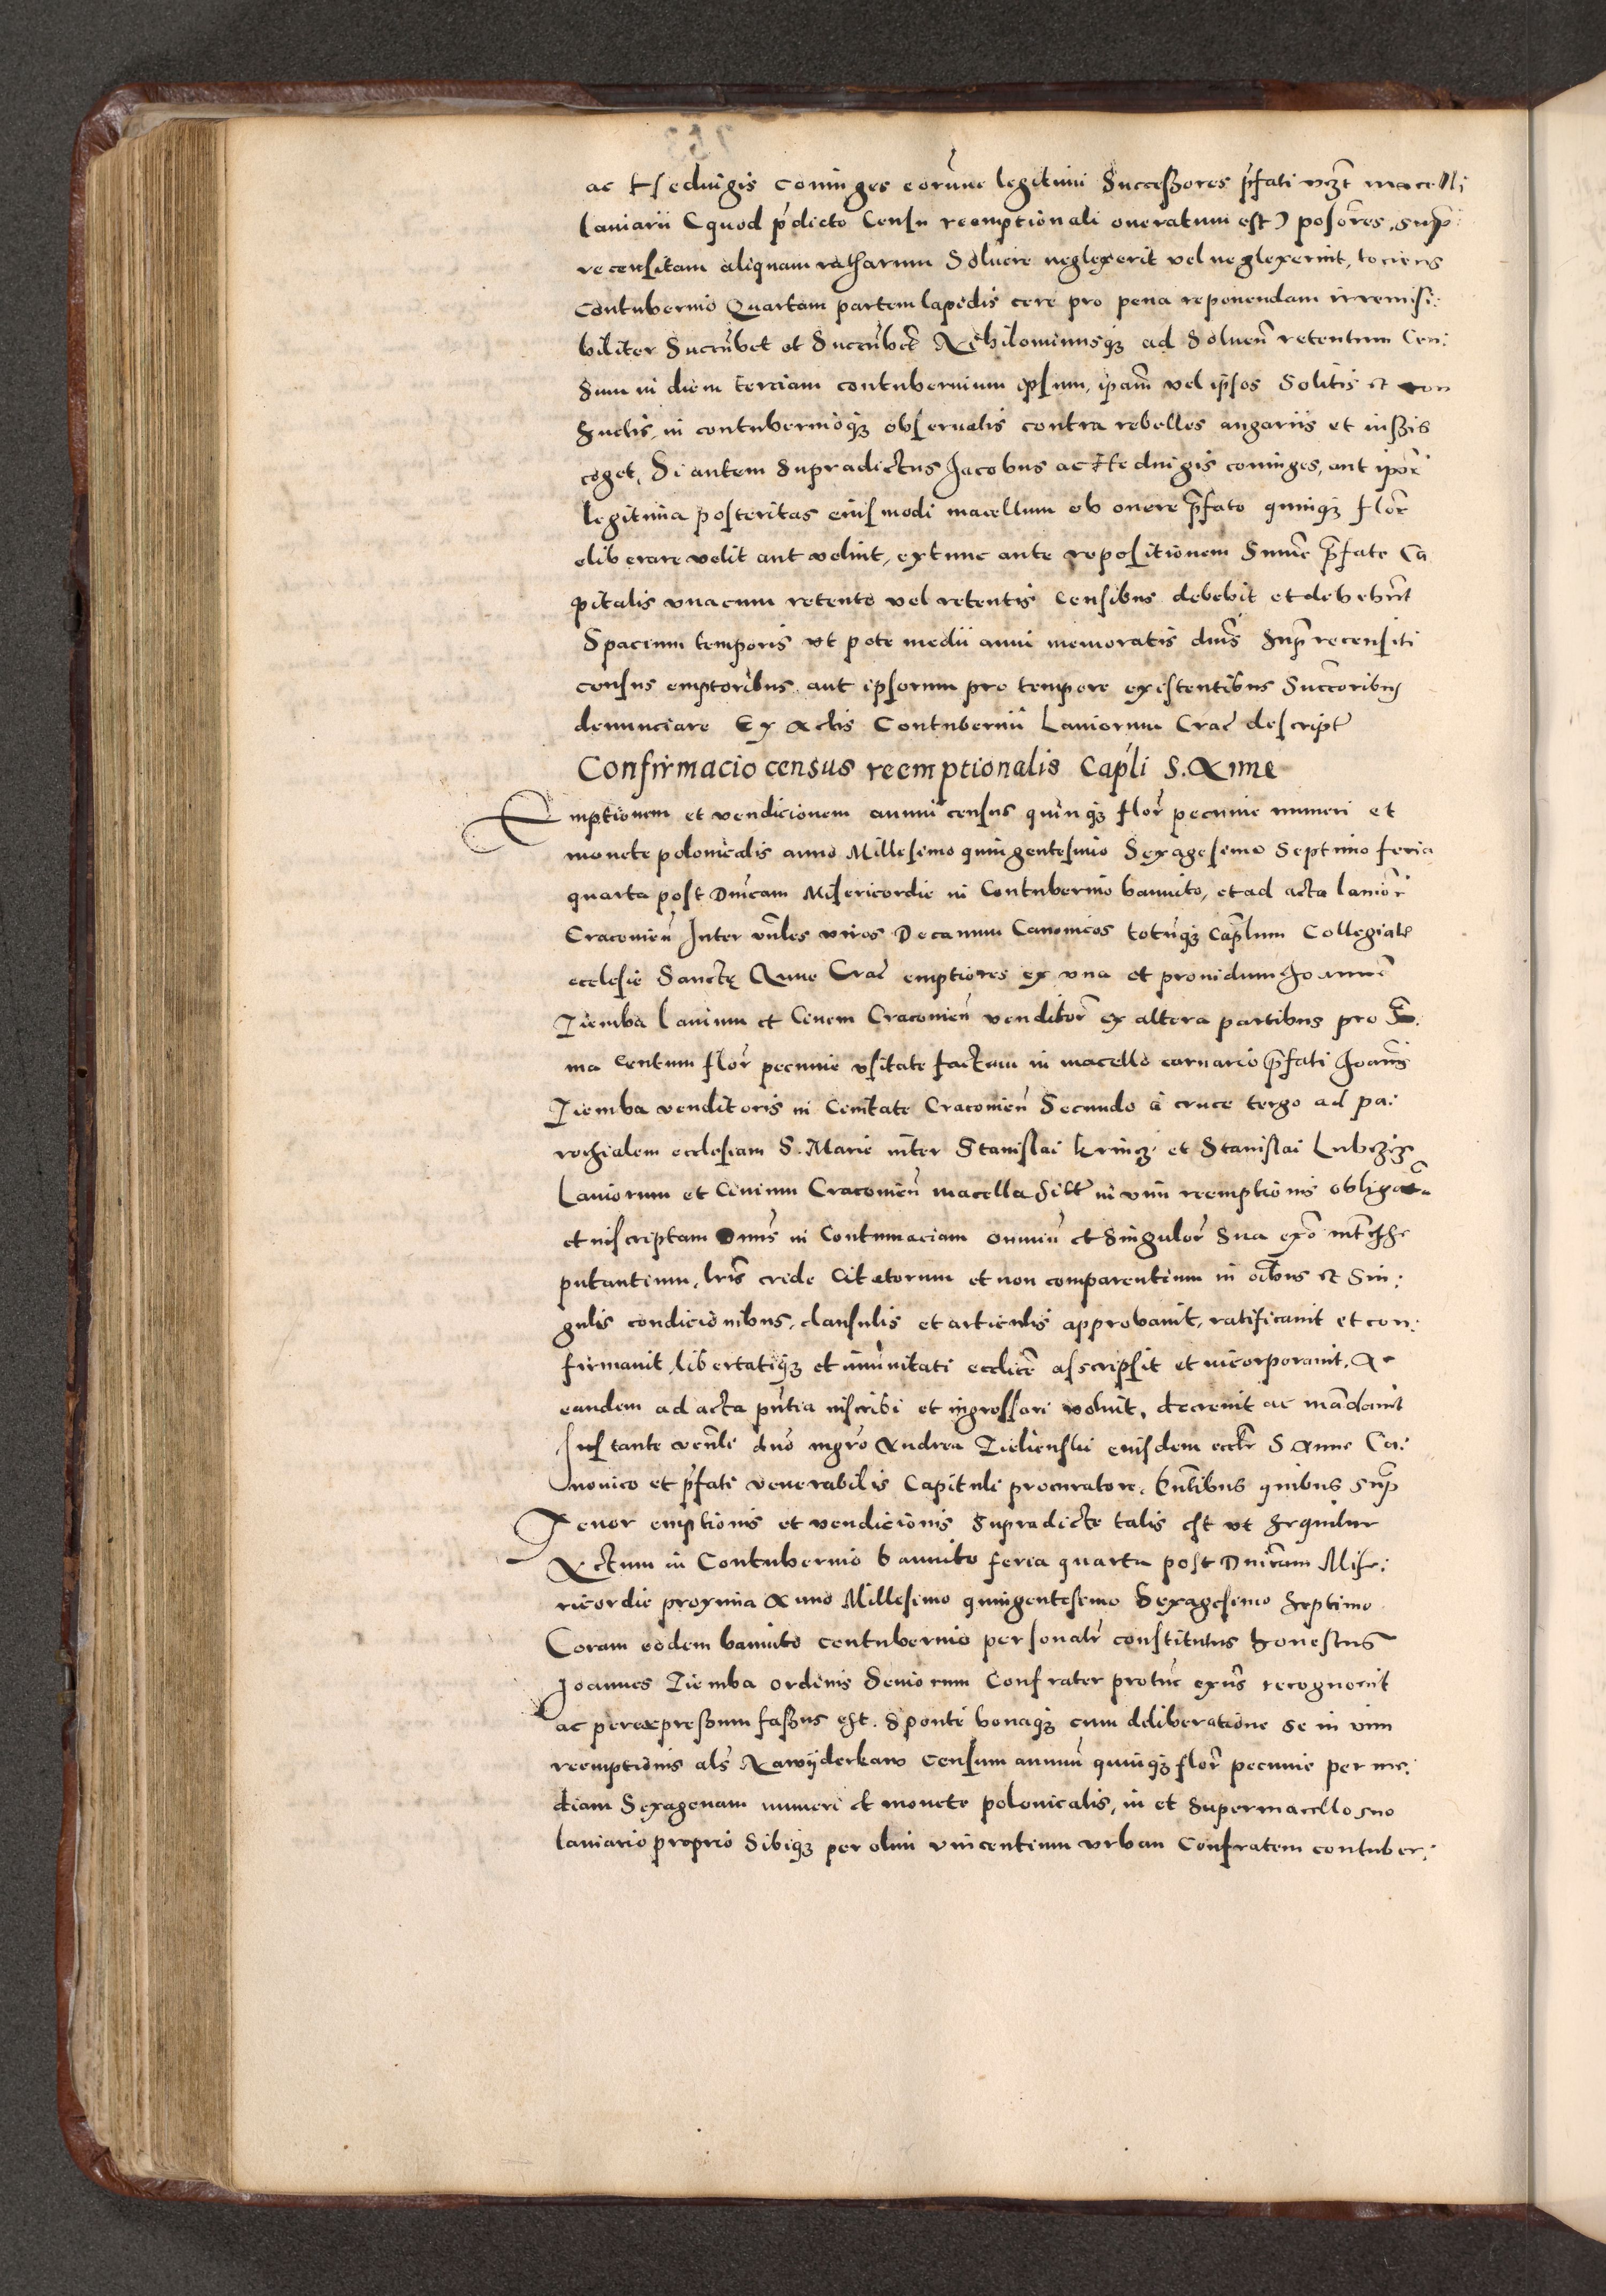 ac Heduigis coniuges eorumue legitimi Successores p̃fati vczt macelli
laniarii (quod p̃dicto Censu reemptionali oneratum est) posores, sup:
recensitam aliquam ratharum Soluere neglexerit vel neglexerint, tociens
Contubernio Quartam partem lapidis cere pro pena reponendam irremisi:
biliter Succũbet et Succũbẽt Nihilominusqȝ ad Soluen̄ retentum Cen:
Sum in diem terciam contubernium ipsum, ip̄am vel ip̄sos Solitis et con
Suetis, in contubernioqȝ obseruatis contra rebelles angariis et iussib
coget, Si autem Supradictus Jacobus ac Heduigis coniuges, aut ipor̃
legitima posteritas eiusmodi macellum ob onere p̃fato quinqȝ flor̃
eliberare velit aut velint, extunc ante repositionem Sum̃e p̃fate Ca
pitalis vnacum retento vel retentis Censibus debebit et debebũt
Spacium temporis vt pote medii anni memoratis dnīs sup̃ recensiti
census emptoribus aut ipsorum pro tempore existentibus Succoribus
denunciare Ex Actis Contubernii Laniorum Crac̃ descript̃
Confirmacio census reemptionalis Capl̃i S. Anne
Emptionem et vendicionem annui census quinqȝ flor̃ pecunie numeri et
monete polonicalis anno Millesimo quingentesimo Sexagesimo Septimo feria
quarta post Dnīcam Misericordie in Contubernio bannito, et ad acta lanior̃
Cracouien̄ Inter vñles viros Decanum Canonicos totũqȝ Cap̃lum Collegiate
ecclesie Sancte Anne Crac̃ emptores ex vna et prouidum Joannẽ
Ziemba lanium et Ciuem Cracouien̄ venditor̃ ex altera partibus pro S̃:
ma Centum flor̃ pecunie vsitate factam in macello carnario p̃fati Joan̄is
Ziemba venditoris in Ciuitate Cracouien̄ Secundo a cruce tergo ad pa:
rochialem ecclesiam S. Marie inter Stanislai et Stanislai
Laniorum et Ciuium Cracouien̄ macella sitt̃ in vim reemptionis obligatã
et inscriptam Dnīs in Contumaciam omniũ et Singulor̃ Sua exõ intēẽ
putantium, lr̃is crede Citatorum et non comparentium in oĩbus et Sin:
gulis condicionibus, clausulis et articulis approbauit, ratificauit et con:
firmauit, libertatiqȝ et imunitati eccl̃ice asscripsit et incorporauit, Ac
eandem ad acta pñtia inscribi et ingrossari voluit, decreuit ac mãdauit
Instante venl̃i dño mgr̃o Andrea Zielienski eiusdem eccl̃ie S Anne Ca:
nonico et p̃fati venerabilis Capituli procuratore. quibus sup̃
Tenor emptionis et vendicionis Supradicte talis est vt sequitur
Actum in Contubernio bannito feria quarta post Dnīcam Mise:
ricordie proxima Anno Millesimo quingentesimo Sexagesimo septimo
Coram eodem bannito contubernio personalr̃ constitutus honestus
Joannes Ziemba ordinis Seniorum Confrater protũc exñs recognouit
ac perexpressum fassus est. Sponte bonaqȝ cum deliberatione se in vim
reemptionis als̃ Nawyderkaw Censum annuũ quinqȝ flor̃ pecunie per me:
diam Sexagenam numeri et monete polonicalis, in et Super macello suo
laniario proprio Sibiqȝ per olim vincentium vrban Confratem contuber: